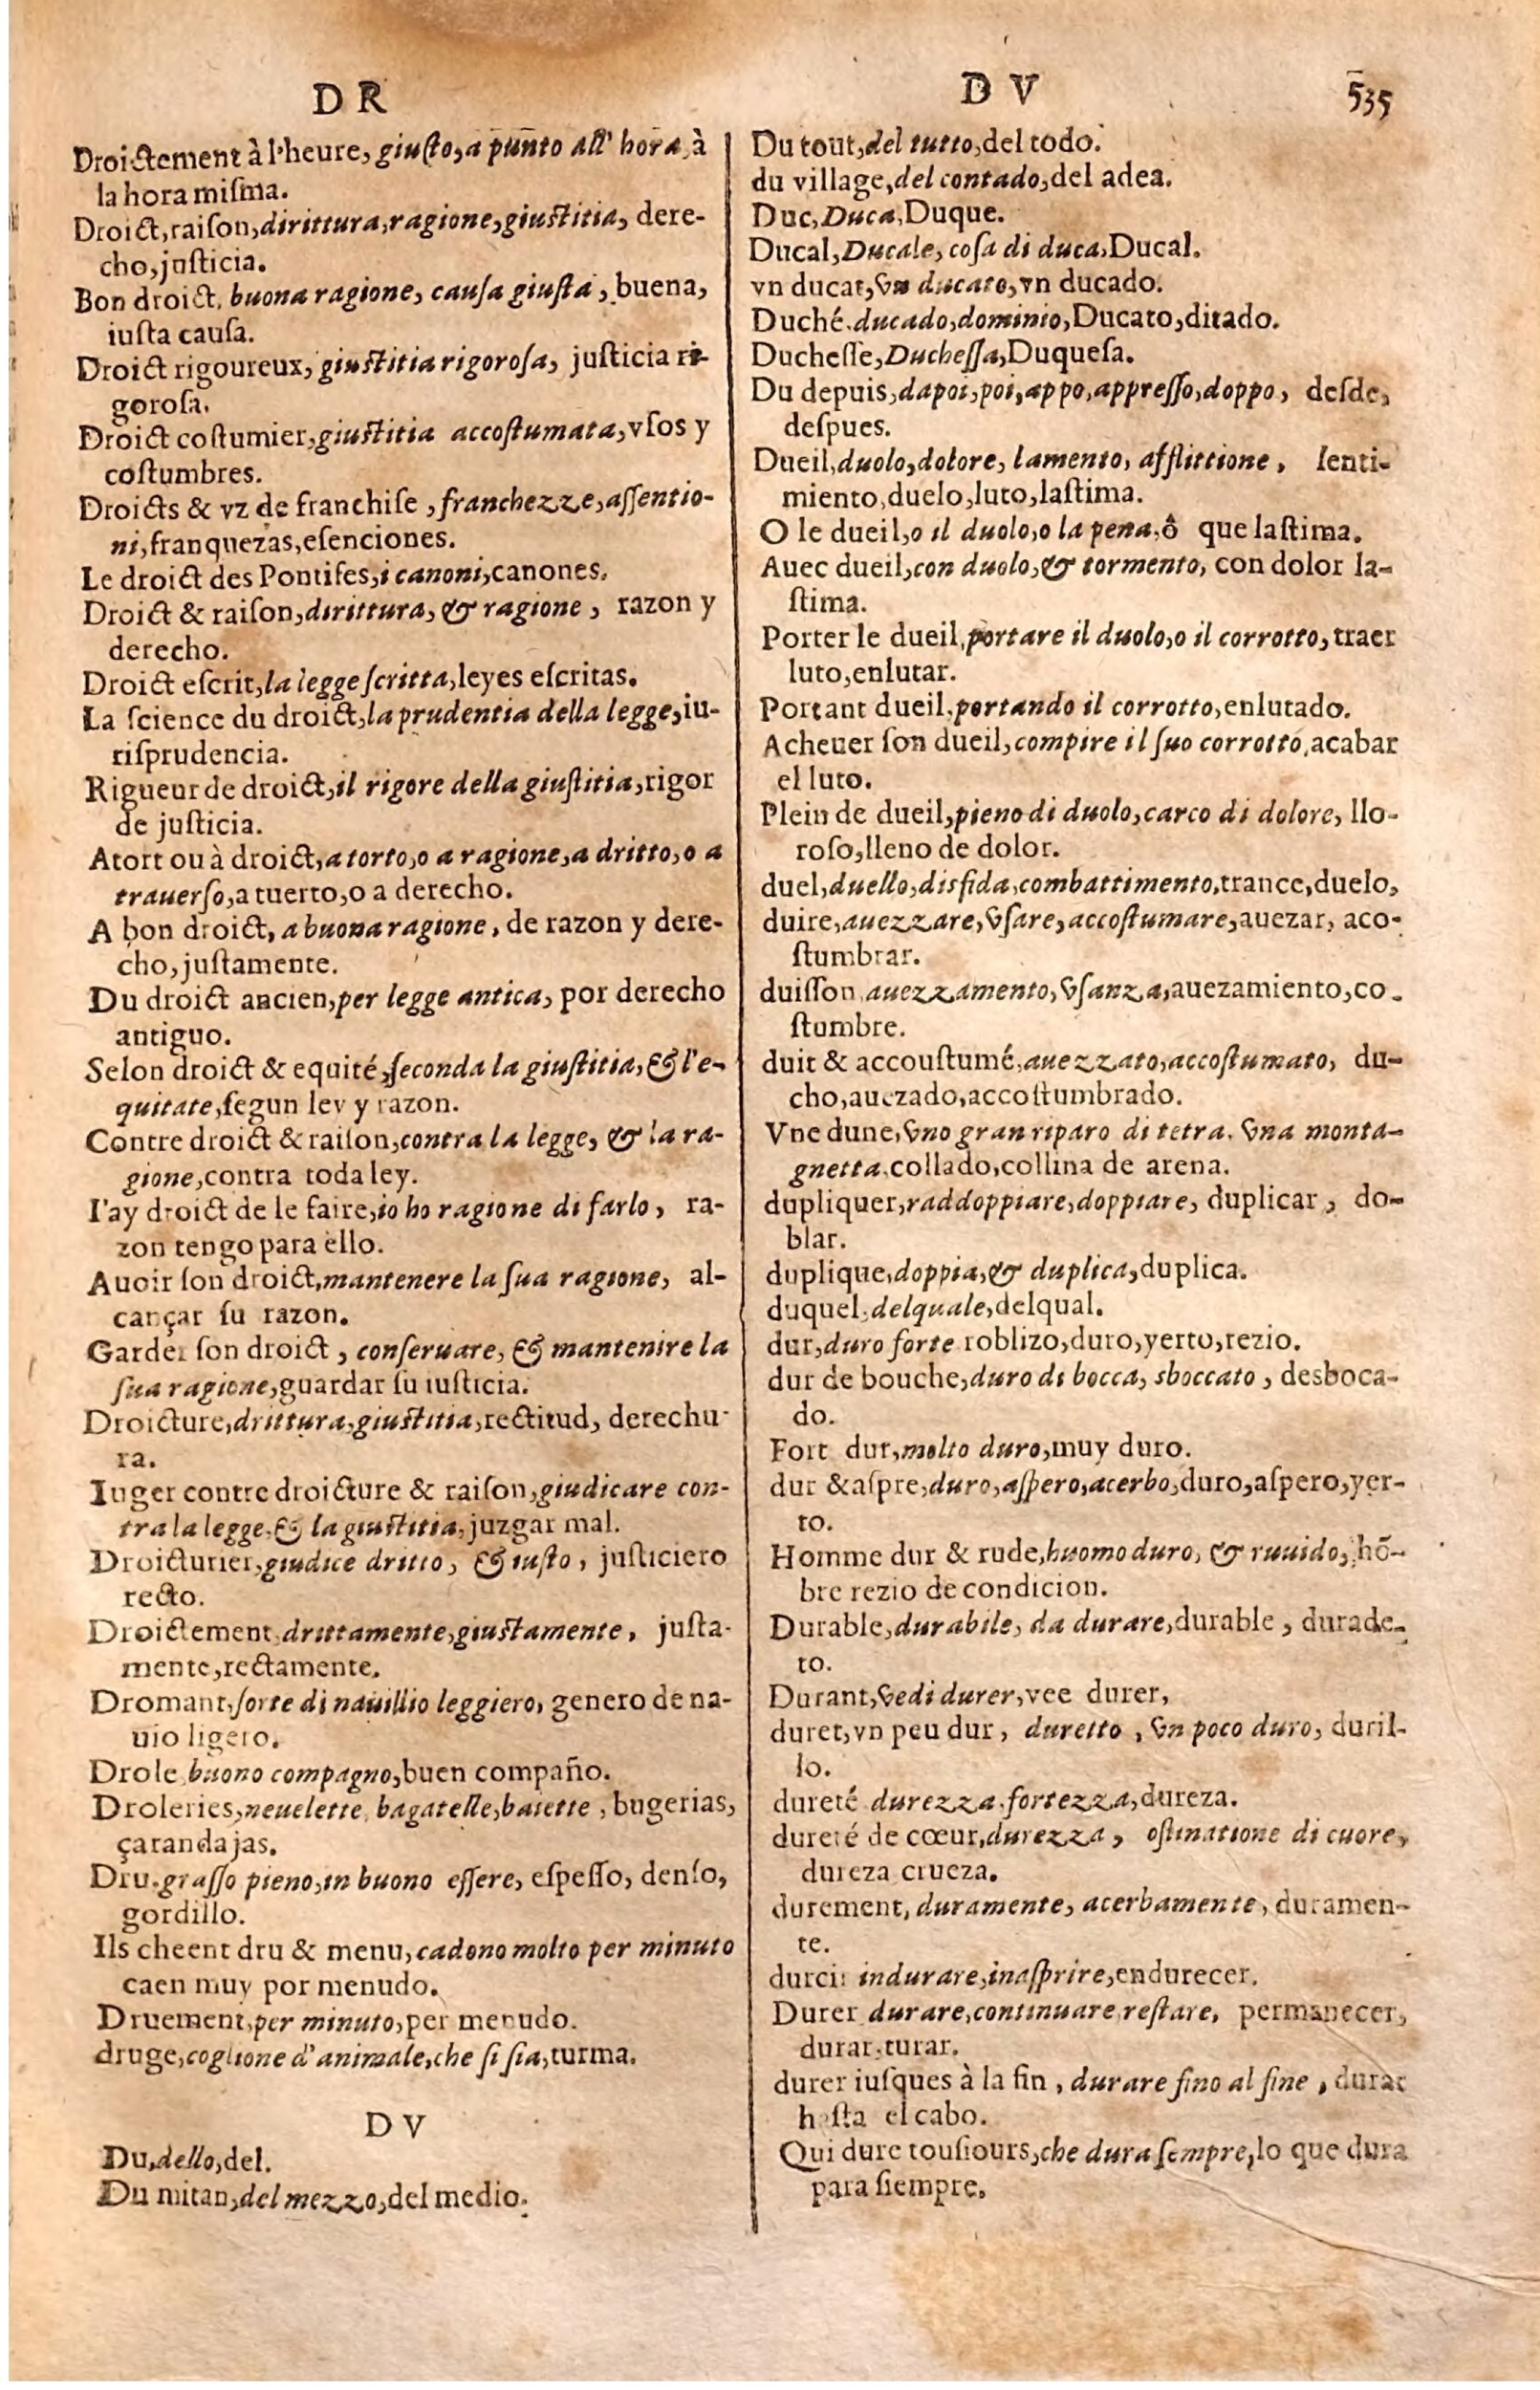 D R
Droictement à l'heure, giuſto, a punto all' hora, à
la hora miſma.
Droict, raiſon, dirittura, ragione, giuſtitia, dere-
cho, juſticia.
Bon droict, buona ragione, cauſa giuſta, buena,
iuſta cauſa.
Droict rigoureux, giuſtitia rigoroſa, juſticia ri-
goroſa.
Droict coſtumier, giuſtitia accoſtumata, vſos y
coſtumbres.
Droicts & vz de franchiſe, franchezze, aſſentio-
ni, franquezas, eſenciones.
Le droict des Pontifes, i canoni, canones.
Droict & raiſon, dirittura, & ragione, razon y
derecho.
Droict eſcrit, la legge ſcritta, leyes eſcritas.
La ſcience du droict, la prudentia della legge, iu-
riſprudencia.
Rigueur de droict, il rigore della giuſtitia, rigor
de juſticia.
A tort ou à droict, a torto, o a ragione, a dritto, o a
trauerſo, a tuerto, o a derecho.
A bon droict, a buona ragione, de razon y dere-
cho, juſtamente.
Du droict ancien, per legge antica, por derecho
antiguo.
Selon droict & equité, ſeconda la giuſtitia, & l'e-
quitate, ſegun ley y razon.
Contre droict & raiſon, contra la legge, & la ra-
gione, contra toda ley.
I'ay droict de le faire, io ho ragione di farlo, ra-
zon tengo para ello.
Auoir ſon droict, mantenere la ſua ragione, al-
cançar ſu razon.
Garder ſon droict, conſeruare, & mantenire la
ſua ragione, guardar ſu iuſticia.
Droicture, drittura, giuſtitia, rectitud, derechu-
ra.
Iuger contre droicture & raiſon, giudicare con-
tra la legge, & la giuſtitia, juzgar mal.
Droicturier, giudice dritto, & iuſto, juſticiero
recto.
Droictement, drittamente, giuſtamente, juſta-
mente, rectamente.
Dromant, ſorte di nauillio leggiero, genero de na-
uio ligero.
Drole, buono compagno, buen compaño.
Droleries, neuelette, bagatelle, baiette, bugerias,
çarandajas.
Dru, graſſo pieno, in buono eſſere, eſpeſſo, denſo,
gordillo.
Ils cheent dru & menu, cadono molto per minuto
caen muy por menudo.
Druement, per minuto, per menudo.
druge, coglione d'animale, che ſi ſia, turma.
D V
Du, dello, del.
Du mitan, del mezzo, del medio.
D V
535
Du tout, del tutto, del todo.
du village, del contado, del adea.
Duc, Duca, Duque.
Ducal, Ducale, coſa di duca, Ducal.
vn ducat, vn ducato, vn ducado.
Duché, ducado, dominio, Ducato, ditado.
Ducheſſe, Ducheſſa, Duqueſa.
Du depuis, dapoi, poi, appo, appreſſo, doppo, deſde,
deſpues.
Dueil, duolo, dolore, lamento, afflittione, ſenti-
miento, duelo, luto, laſtima.
O le dueil, o il duolo, o la pena, ô que laſtima.
Auec dueil, con duolo, & tormento, con dolor la-
ſtima.
Porter le dueil, portare il duolo, o il corrotto, traer
luto, enlutar.
Portant dueil, portando il corrotto, enlutado.
Acheuer ſon dueil, compire il ſuo corrotto, acabar
el luto.
Plein de dueil, pieno di duolo, carco di dolore, llo-
roſo, lleno de dolor.
duel, duello, disfida, combattimento, trance, duelo,
duire, auezzare, vſare, accoſtumare, auezar, aco-
ſtumbrar.
duiſſon, auezzamento, vſanza, auezamiento, co-
ſtumbre.
duit & accouſtumé, auezzato, accoſtumato, du-
cho, auezado, accoſtumbrado.
Vne dune, vno gran riparo di tetra, vna monta-
gnetta, collado, collina de arena.
dupliquer, raddoppiare, doppiare, duplicar, do-
blar.
duplique, doppia, & duplica, duplica.
duquel, delquale, delqual.
dur, duro forte roblizo, duro, yerto, rezio.
dur de bouche, duro di bocca, sboccato, desboca-
do.
Fort dur, molto duro, muy duro.
dur & aſpre, duro, aſpero, acerbo, duro, aſpero, yer-
to.
Homme dur & rude, huomo duro, & ruuido, hõ-
bre rezio de condicion.
Durable, durabile, da durare, durable, durade-
to.
Durant, vedi durer, vee durer,
duret, vn peu dur, duretto, vn poco duro, duril-
lo.
dureté durezza, fortezza, dureza.
dureté de cœur, durezza, oſtinatione di cuore,
dureza crueza.
durement, duramente, acerbamente, duramen-
te.
durcir indurare, inaſprire, endurecer.
Durer durare, continuare, reſtare, permanecer,
durar, turar.
durer iuſques à la fin, durare fino al fine, durar
haſta el cabo.
Qui dure touſiours, che dura ſempre, lo que dura
para ſiempre.